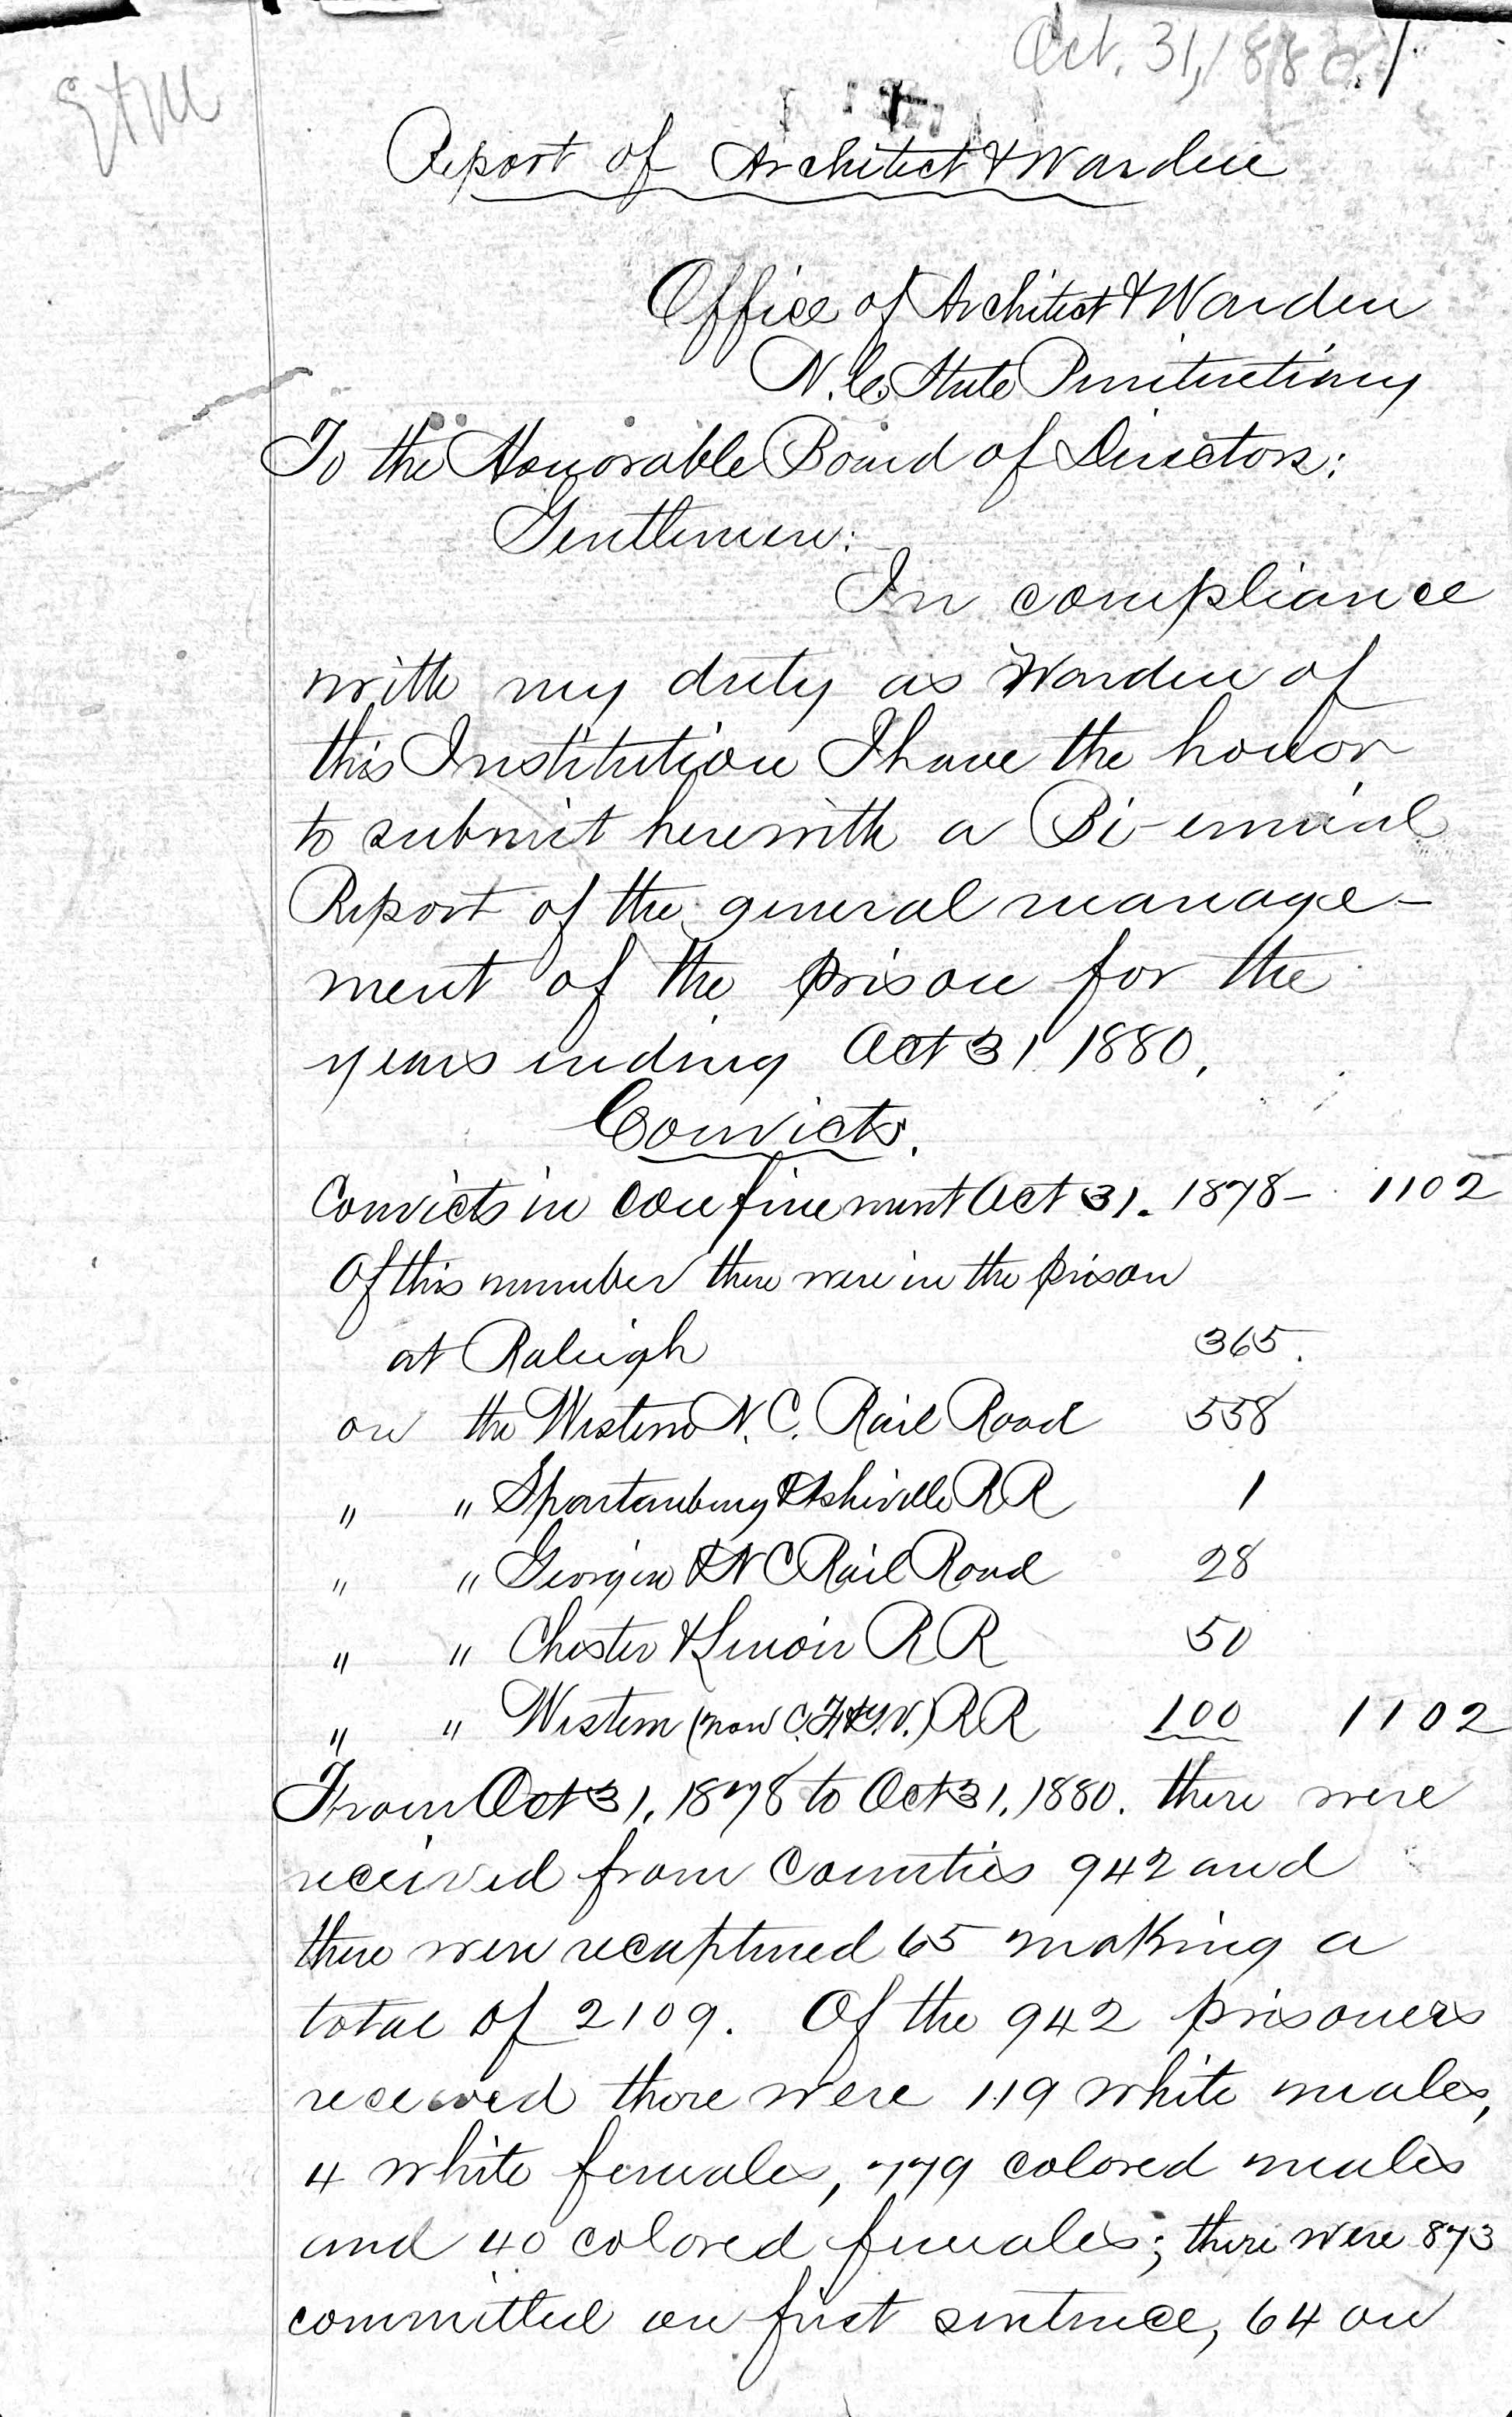 Oct. 31, 1880. 1
Report of Architect & Warden
Office of Architect & Warden
N.C. State Penitentiary
To the Honorable Board of Directors:
Gentlemen:
In compliance
with my duty as Warden of
this Institution I have the honor
to submit herewith a Bi-ennial
Report of the general manage-
ment of the prison for the
years ending Oct 31 1880.
Convicts.
Convicts in confinement Oct 31. 1878- 1102
Of this number there were in the prison
at Raleigh 365.
on the Western N.C. Rail Road 558
" " Spartanburg & Asheville RR 1
" " Georgia & N C Rail Road 28
" " Chester & Lenoir RR 50
" " Western (now C.F.&Y.V.) RR 100 1102
From Oct 31, 1878 to Oct 31, 1880. there were
received from Counties 942 and
there were recaptured 65 making a
total of 2109. Of the 942 prisoners
received there were 119 white males,
4 white females, 779 colored males
and 40 colored females; there were 873
committed on first sentence, 64 on